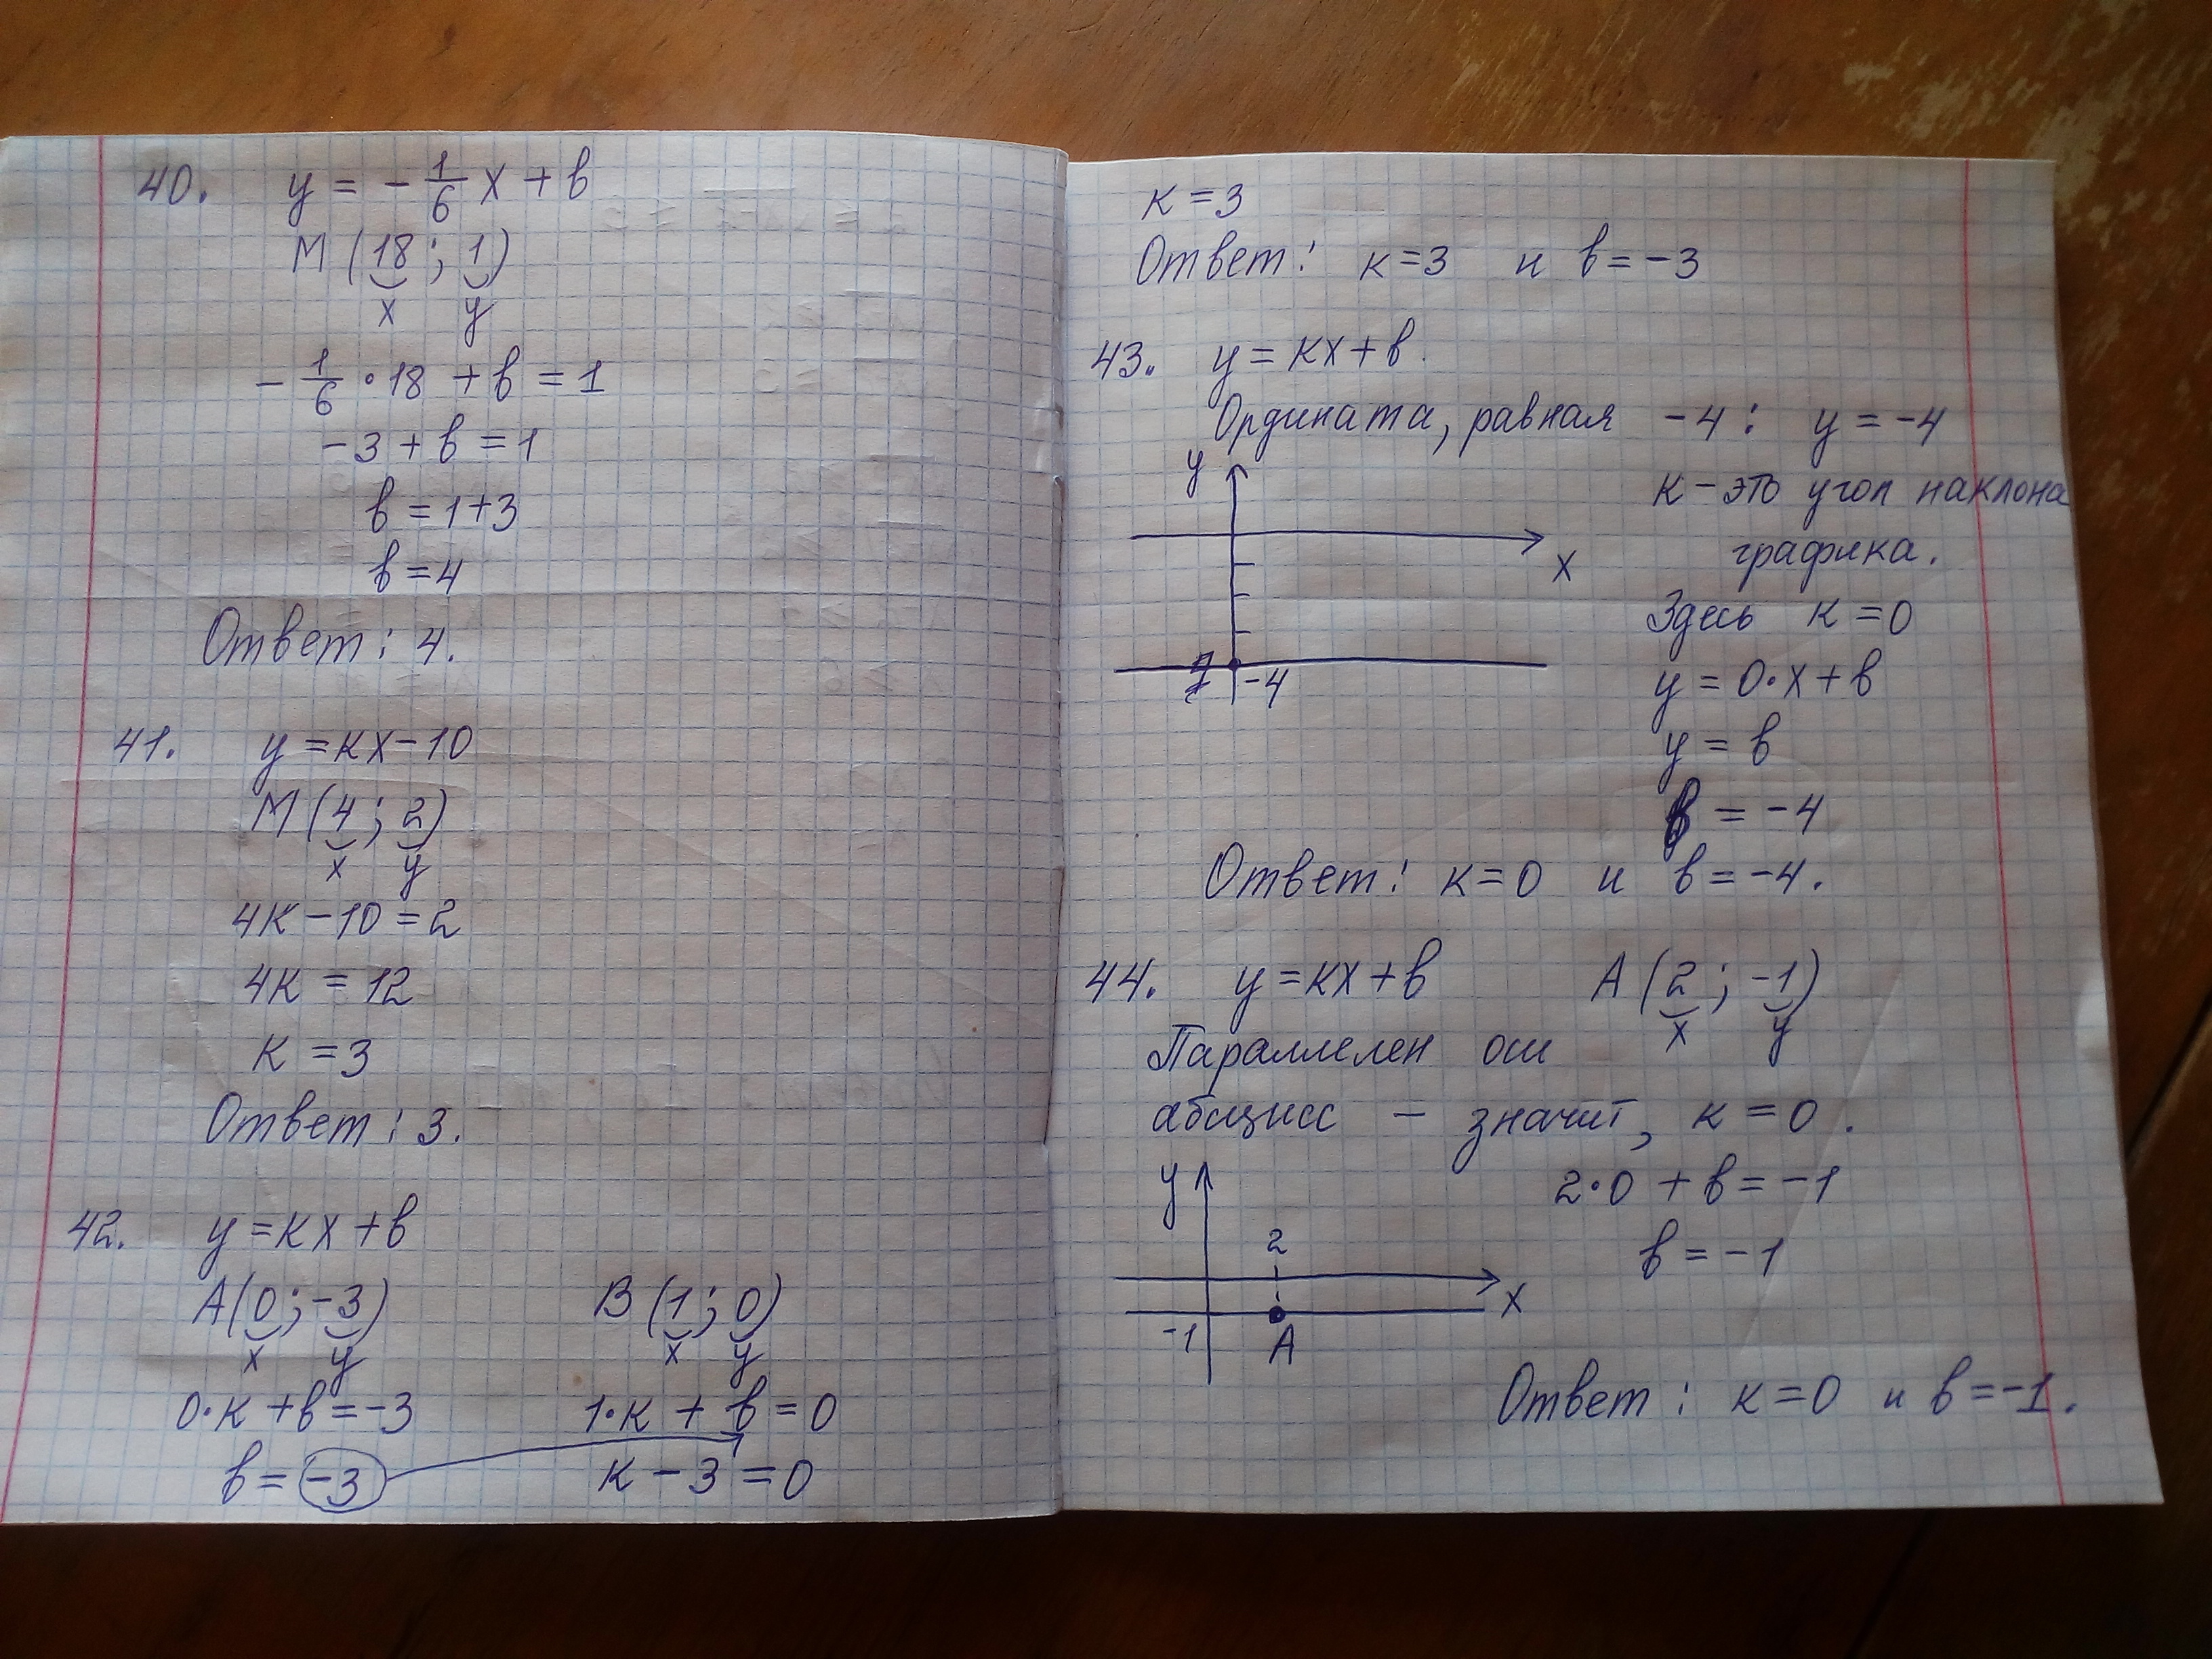 40. y = - 1/6 x + b
M (18 ; 1)
x y
- 1/6 • 18 + b = 1
-3 + b = 1
b = 1+3
b = 4
Ответ: 4.
41. y = kx - 10
M (4 ; 2)
x y
4k - 10 = 2
4k = 12
k = 3
Ответ: 3.
42. y = kx + b
A(0 ; -3) B (1 ; 0)
x y x y
0•k + b = -3 1•k + b = 0
b = -3 k - 3 = 0
k = 3
Ответ: k = 3 и b = -3
43. y = kx + b.
Ордината, равная -4: y = -4
y
k - это угол наклона
графика.
x
Здесь k = 0
-4
y = 0•x + b
y = b
b = -4
Ответ: k = 0 и b = -4.
44. y = kx + b A (2 ; -1)
x y
Параллелен оси
абсцисс - значит, k = 0.
y
2•0 + b = -1
2
b = -1
x
-1 A
Ответ: k = 0 и b = -1.